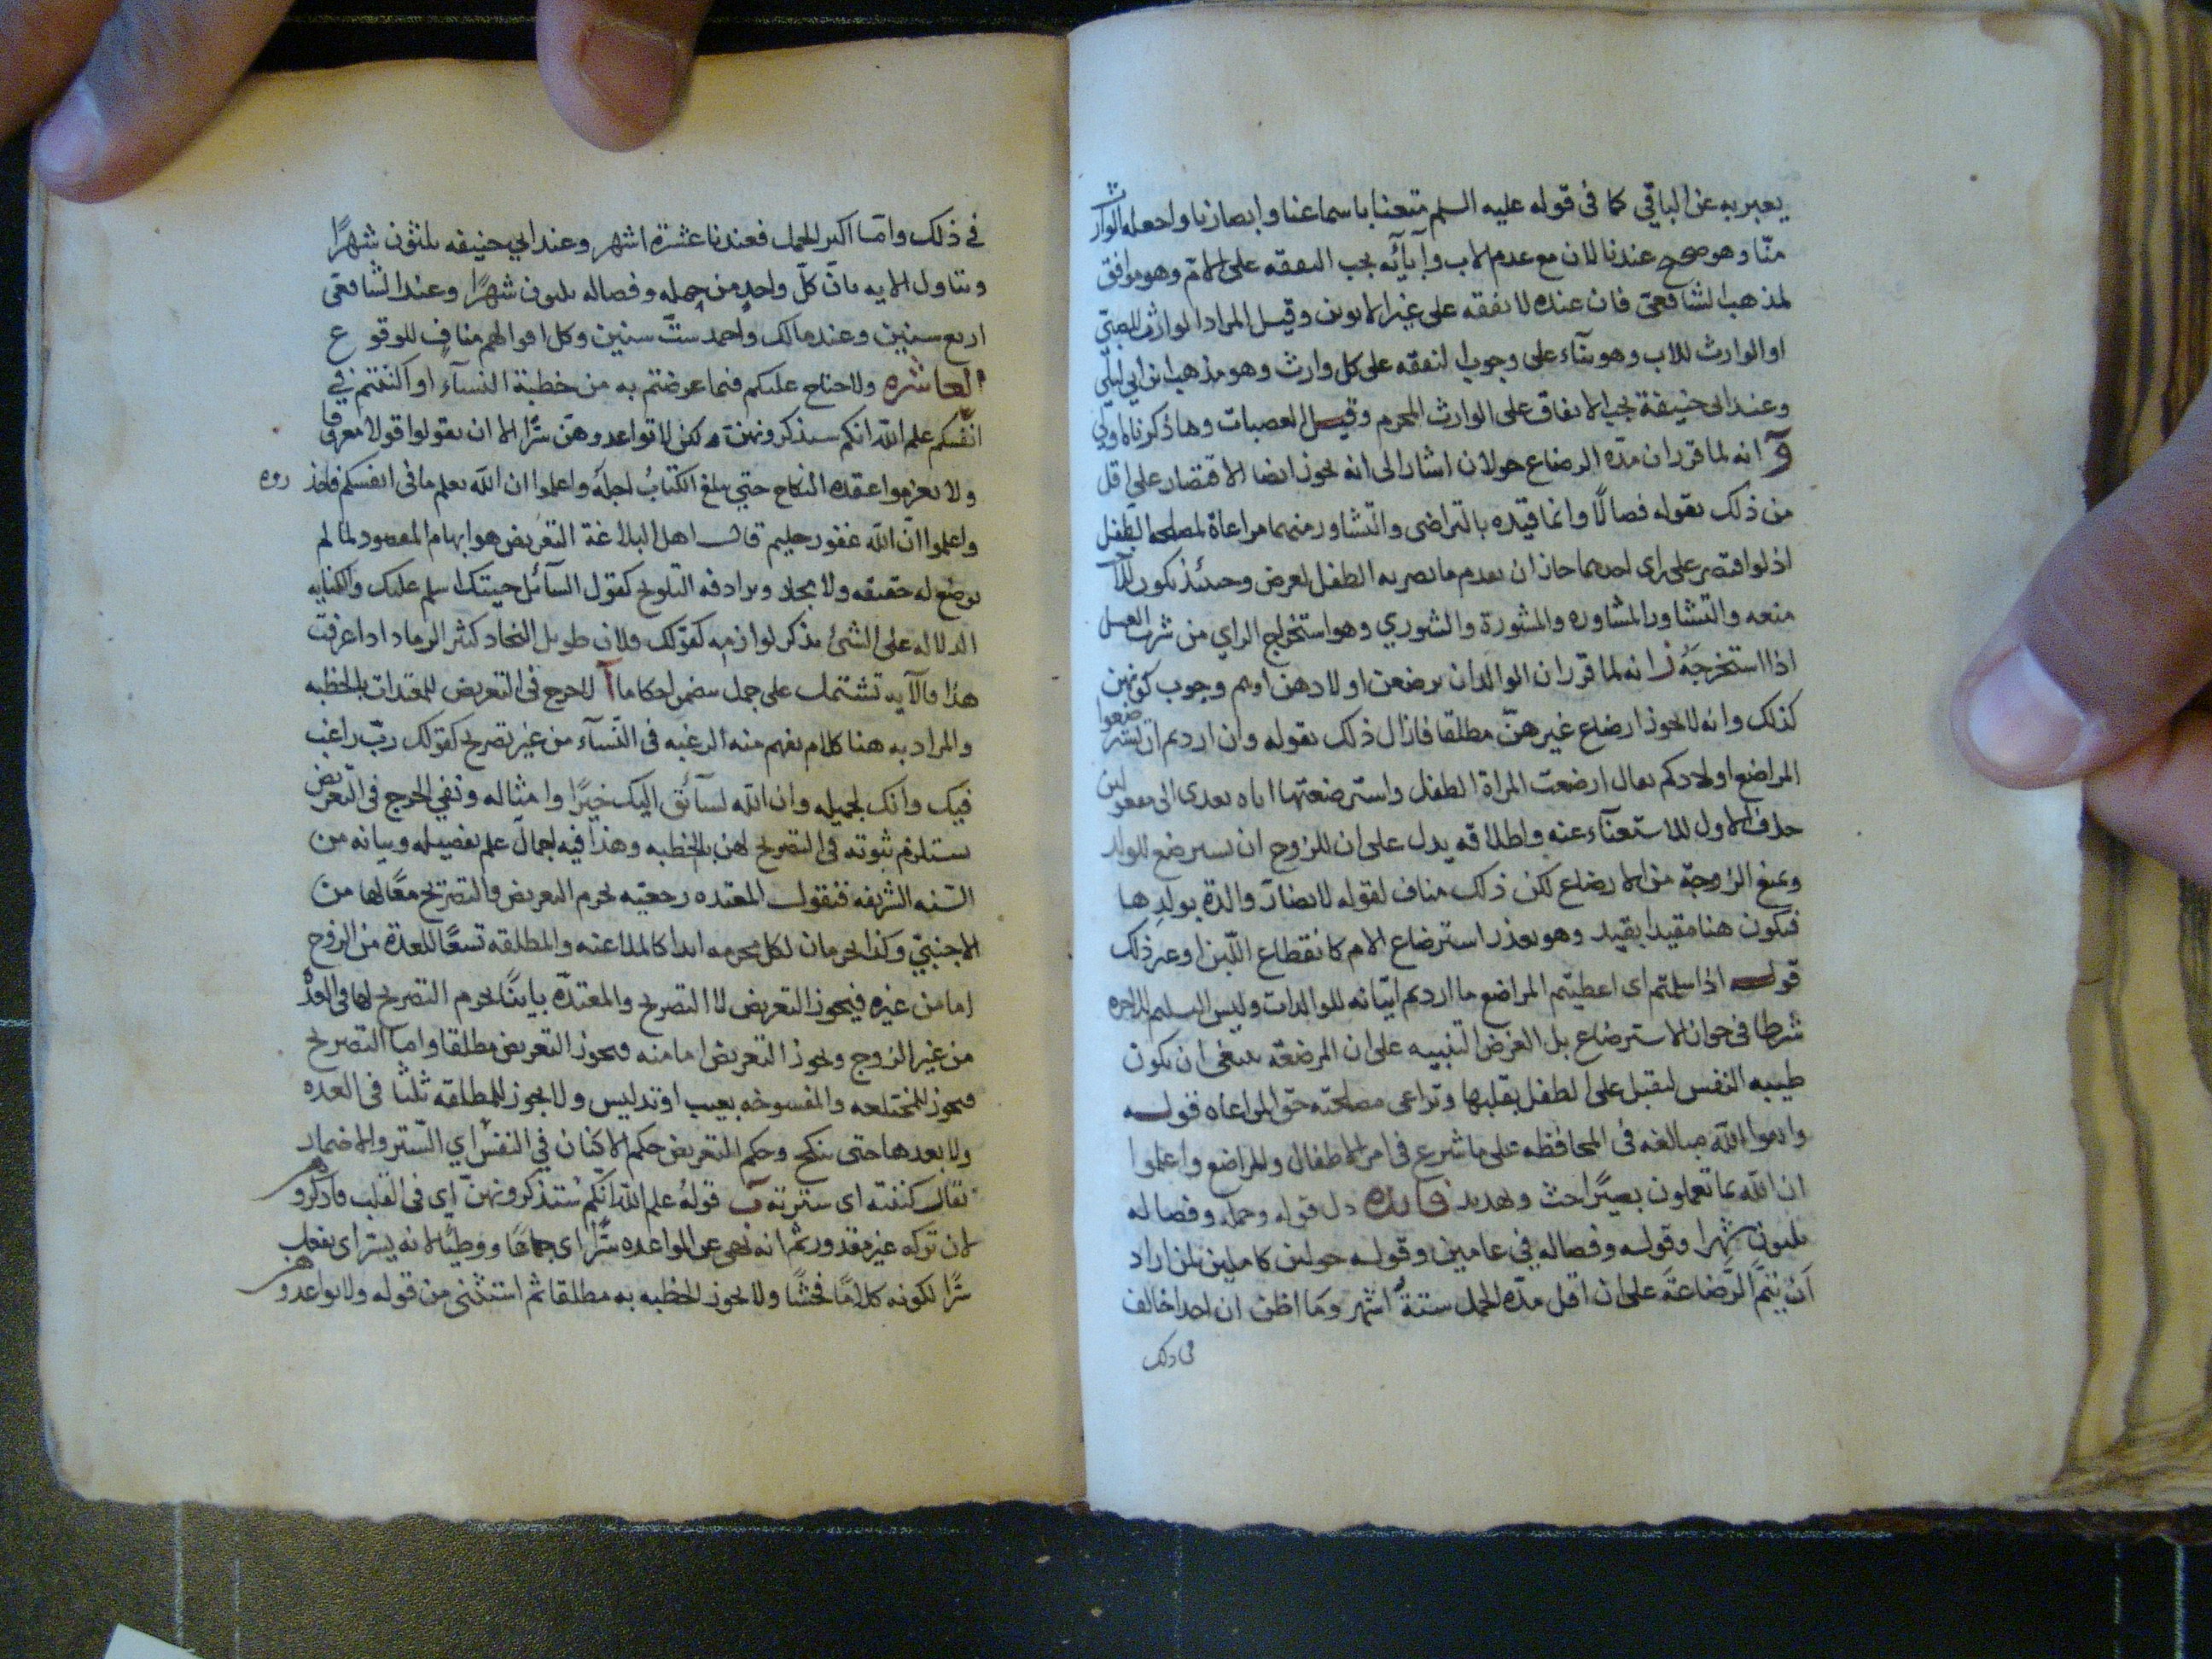 يعبر به عن الباقي كما فى قوله عليه السلم متعنا باسماعنا وابصارنا واجعله الوارث
منّا وهو صحيح عندنا لان مع عدم الاب وآبائه يجب النفقه على الامّ وهو موافق
لمذهب الشافعىّ فان عنده لا نفقه على غير الابوين وقيل المراد الوارث للصبىّ
او الوارث للاب وهو بناء على وجوب النفقه على كل وارث وهو مذهب ابن ابي ليلى
وعند ابى حنيفة يجب الانفاق على الوارث المحرم وقيل العصبات وما ذكرناه اولى
و انه لما قرر ان مدّه الرضاع حولان اشار الى انه يجوز ايضا الاقتصار على اقل
من ذلك بقوله فصالًا وانما قيّده بالتراضى والتشاور منهما مراعاة لمصلحه الطفل
اذ لو اقتصر على راى احدهما جاز ان يقدم ما يضر به الطفل لغرض وحينئذ يكون للآخر
منعه والتشاور المشاوره والمشورة والشوري وهو استخراج الراي من شرت العسل
اذا استخرجته ز انه لما قرر ان الوالدات يرضعن اولادهن اوهم وجوب كونهن
كذلك وانه لا يجوز ارضاع غيرهنّ مطلقا فازال ذلك بقوله وان اردتم ان تسترضعوا
المراضع اولادكم يقال ارضعت المراة الطفل واسترضعتها اياه يعدى الى مفعولين
حذف الاول للاستغناء عنه واطلاقه يدل على ان للزوج ان يسترضع للولد
ويمنع الزوجة من الارضاع لكن ذلك مناف لقوله لا تضارّ والدة بولدها
فيكون هنا مقيدا بقيد وهو تعذر استرضاع الام كانقطاع اللّبن او غير ذلك
قوله اذا سلمتم اى اعطيتم المراضع ما اردتم ايتيانه للوالدات وليس التسليم للاجره
شرطا فى جواز الاسترضاع بل الغرض التنبيه على ان المرضعة ينبغى ان يكون
طيبه النفس لتقبل على الطفل بقلبها وتراعى مصلحته حق المراعاه قوله
واتقوا اللّه مبالغه فى المحافظه على ما شرع فى امر الاطفال والمراضع واعلموا
ان اللّه بما تعملون بصيرًا حث وتهديد فايده دل قوله وحمله وفصاله
ثلثون شهرا وقوله وفصاله في عامين وقوله حولين كاملين لمن اراد
ان يتمّ الرّضاعة على ان اقل مدّه الحمل ستّة اشهر وما اظن ان احدا خالف
فى ذلك
في ذلك وامّا اكبر الحمل فعندنا عشرة اشهر وعند ابي حنيفه ثلثون شهرًا
ويتاول الايه بانّ كلّ واحد من حمله وفصاله ثلثون شهرًا وعند الشافعى
اربع سنين وعند مالك واحمد ستّ سنين وكل اقوالهم مناف للوقوع
العاشره ولا جناح عليكم فيما عرضتم به من خطبة النسآء او اكننتم في
انفسكم علم اللّه انكم ستذكرونهنّ ولكن لا تواعدوهنّ سرّا الا ان تقولوا قولا معروفا
ولا تعزموا عقده النكاح حتي يبلغ الكتاب اجله واعلموا ان اللّه يعلم ما فى انفسكم فاحذ
روه
واعلموا انّ اللّه غفور حليم قال اهل البلاغة التعريض هو ايهام المقصود لما لم
يوضع له حقيقه ولا مجاز ويرادفه التلويح كقول السآئل جيتك اسلم عليك والكنايه
الدلاله على الشىٔ بذكر لوازمه كقولك فلان طويل النجاد كثير الرماد اذا عرفت
هذا فالآيه تشتمل على جمل يتضمن احكاما آ لا حرج فى التعريض للمعتدات بالخطبه
والمراد به هنا كلام يفهم منه الرغبه فى النّسآء من غير تصريح كقولك ربّ راغب
فيك وانك لجميله وان اللّه لسآئق اليك خيرًا وامثاله ونفى الحرج فى التعريض
يستلزم ثبوته فى التصريح لهن بالخطبه وهذا فيه اجمال علم تفصيله وبيانه من
السّنه الشريفه فنقول المعتده رجعيّه يحرم التعريض والتصريح معًا لها من
الاجنبىّ وكذا يحرمان لكل محرمه ابدا كالملاعنه والمطلقه تسعًا للعدة من الزوج
اما من غيره فيجوز التعريض لا التصريح والمعتدّه باينًا يحرم التصريح لها فى العدّه
من غير الزوج ويجوز التعريض اما منه فيجوز التعريض مطلقا واما التصريح
فيجوز للمختلعه والمفسوخه بعيب او تدليس ولا يجوز للمطلقه ثلثا فى العده
ولا بعدها حتى تنكح وحكم التعريض حكم الاكنان في النفس اي السّتر والاضمار
يقال كننته اى سترته ب قوله علم اللّه انّكم ستذكرونهنّ اى فى القلب فاذكروهن
لان تركه غير مقدور ثم انه نهى عن المواعده سرًّا اى جماعًا ووطئًا لانه يستر اى يفعل
سرًّا لكونه كلامًا فحشًا ولا يجوز الخطبه به مطلقا ثم استثنى من قوله ولا تواعدوهن